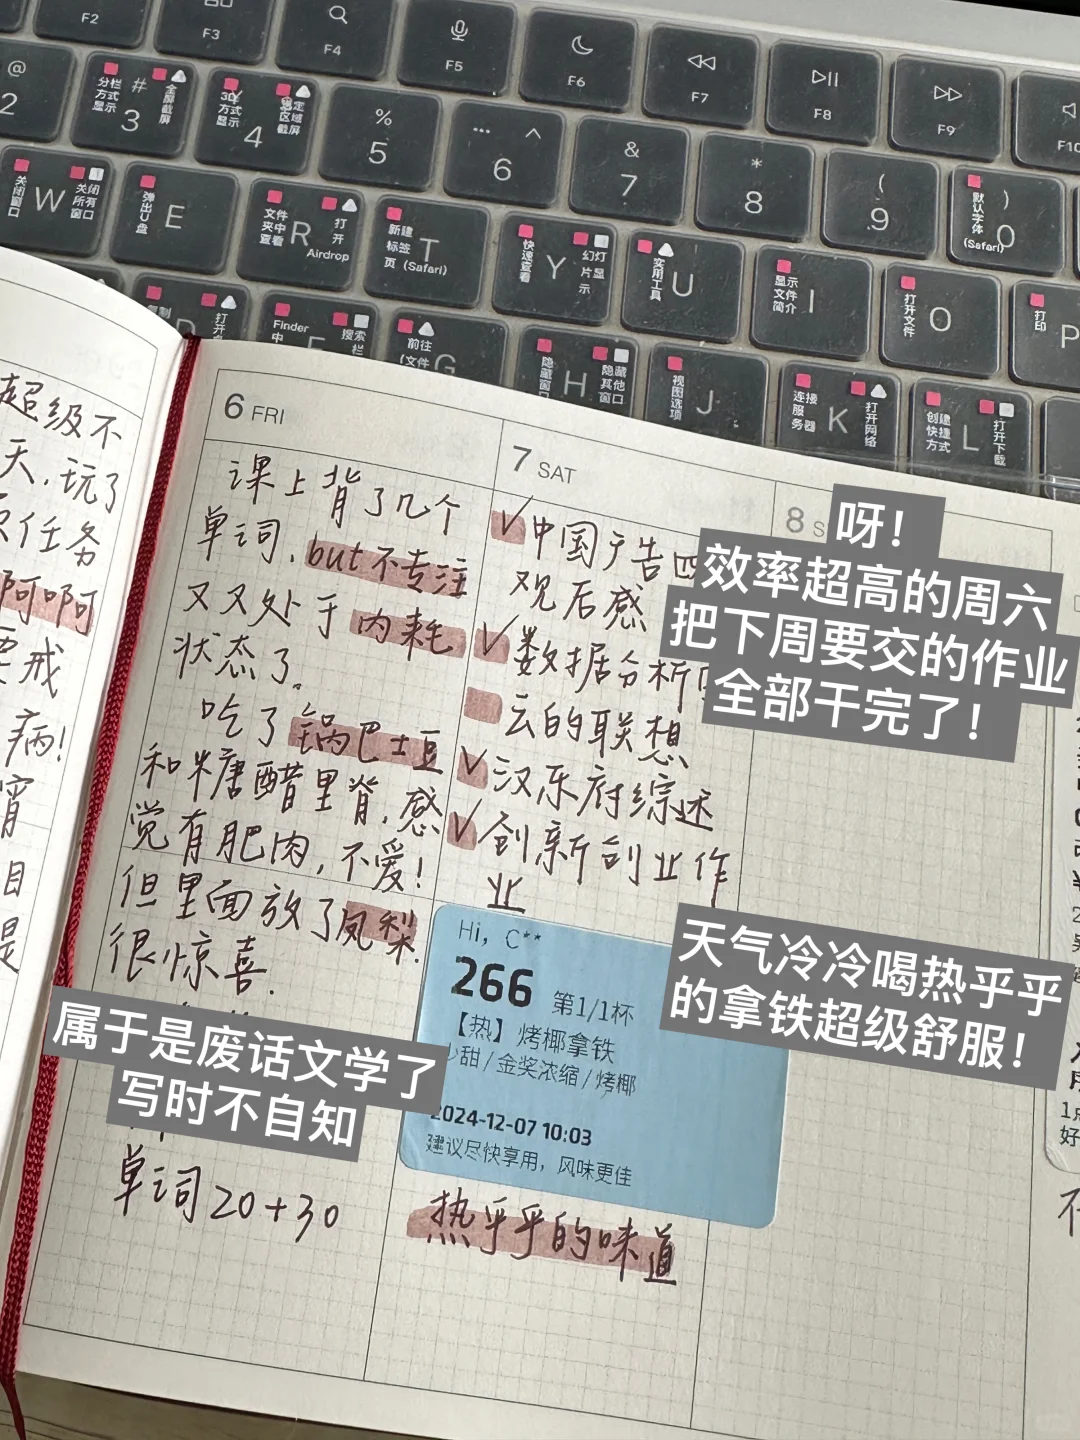 F2
F3
F4
F5
F6
F7
F8
F9
F10
@
2
分栏方式显示
#
3
全屏截屏
4
%
5
^
6
&
7
*
8
(
9
默认字体
(Safari)
)
0
关闭窗口
W
关闭所有窗口
弹出U盘
E
文件夹中查看
R
打开
Airdrop
新建
标签
页（Safari）
T
快速查看
Y
幻灯片显示
实用工具
U
显示
文件
简介
I
打开文件
O
打印
P
Finder
中
F
搜索栏
前往
（文件
G
隐藏窗口
H
隐藏其他窗口
视图选项
J
连接
服务器
K
打开网络
创建
快捷
方式
L
打开下载
超级不
天，玩了
任务
啊啊
要戒
病！
宵
目
是
6 FRI
课上背了几个
单词，but不专注
又又处于内耗
状态了。
吃了锅巴土豆
和糖醋里脊，感
觉有肥肉，不爱！
但里面放了凤梨，
很惊喜．
属于是废话文学了
写时不自知
单词20+30
7 SAT
✓中国广告四
观后感
✓数据分析
云的联想
✓汉乐府综述
✓创新创业作
业
Hi，C**
266 第1/1杯
【热】烤椰拿铁
少甜/金奖浓缩/烤椰
2024-12-07 10:03
建议尽快享用，风味更佳
热乎乎的味道
8 S
呀！
效率超高的周六
把下周要交的作业
全部干完了！
天气冷冷喝热乎乎
的拿铁超级舒服！